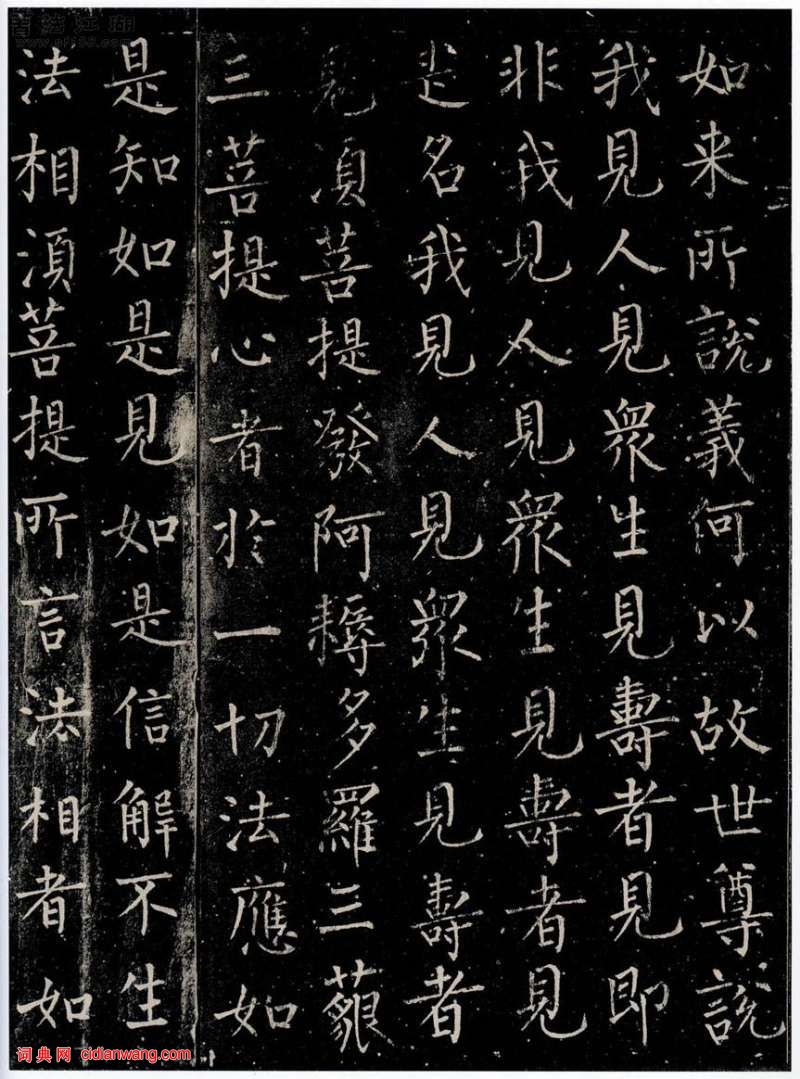 如来所說義何以故世尊說
我見人見衆生見壽者見即
非我見人見衆生見壽者見
是名我見人見衆生見壽者
見湏菩提發阿耨多羅三藐
三菩提心者於一切法應如
是知如是見如是信解不生
法相湏菩提所言法相者如
词典网 cidianwang.com